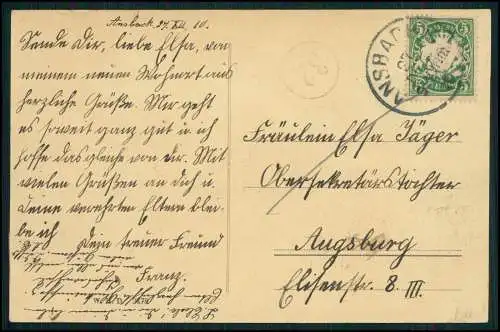 Ansbach 27. XII. 10.
Sende Dir, liebe Elsa, von
meinem neuen Wohnort aus
herzliche Grüße. Mir geht
es soweit ganz gut u. ich
hoffe das gleiche von Dir. Mit
vielen Grüßen an dich u.
deine verehrten Eltern blei-
be ich
Dein treuer Freund
Franz.
ANSBACH
5
Fräulein Elsa Jäger
Obersekretärstochter
Augsburg
Elisenstr. 8 III.